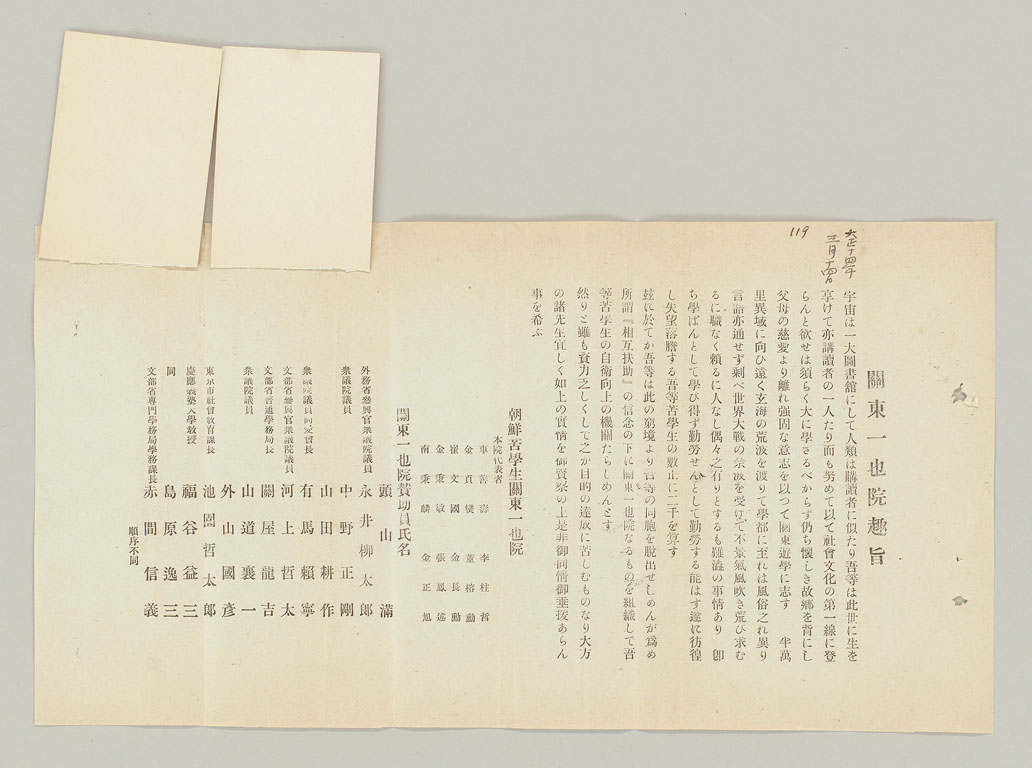 119
大正十四年
三月十四日
關東一也院趣旨
宇宙は一大圖書舘にして人類は購讀者に似たり吾等は此世に生を
享けて亦講讀者の一人たり而も努めて以て社會文化の第一線に登
らんと欲せは須らく大に學さるべからず仍ち懷しき故鄕を背にし
父母の慈愛より離れ强固な意志を以つて關東遊學に志す　半萬
里異域に向ひ遠く玄海の荒波を渡りて學都に至れは風俗之れ異り
言語亦通せず剩へ世界大戰の余波を受けて不景氣風吹き荒び求む
るに職なく賴るに人なし偶々之有りとするも難澁の事情あり　卽
ち學ばんとして學び得ず勤勞せんとして勤勞する能はず遂に彷徨
し失望落膽する吾等苦學生の數正に二千を算す
玆に於てか吾等は此の窮境より吾等の同胞を脫出せしめんが爲め
所謂『相互扶助』の信念の下に關東一也院なるものを組織して吾
等苦學生の自衛向上の機關たらしめんとす
然りと雖も資力乏しくして之か目的の達成に苦しむものなり大方
の諸先生宜しく如上の實情を御賢察の上是非御同情御垂援あらん
事を希ふ
朝鮮苦學生關東一也院
本院代表者
車善壽　李柱哲
金貞　董榕勳
崔文國　金長勳
金秉敏　張鳳述
南秉麟　金正旭
關東一也院贊助員氏名
頭山滿
外務省參與官衆議院議員　永井柳太郎
衆議院議員　中野正剛
山田耕作
衆議院議員同愛會長　有馬賴寧
文部省參與官衆議院議員　河上哲太
文部省普通學務局長　關屋龍吉
衆議院議員　山道襄一
外山國彥
東京市社會敎育課長　池園哲太郎
慶應義塾大學敎授　福谷益三
同　島原逸三
文部省專門學務局學務課長　赤間信義
順序不同